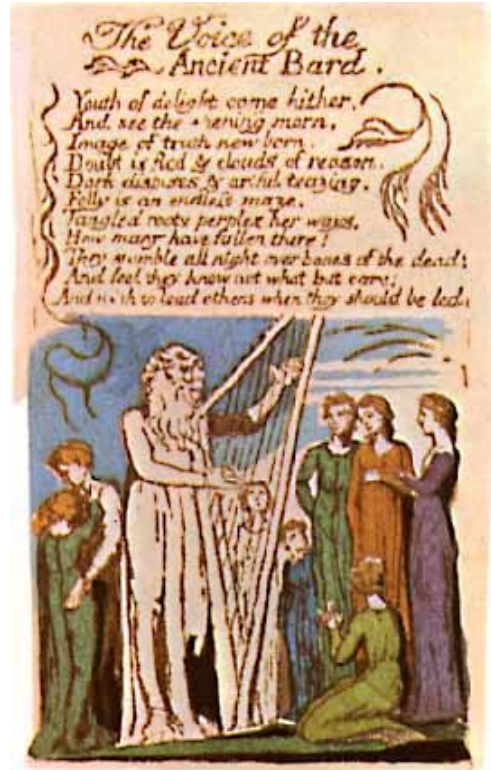 The Voice of the
Ancient Bard.
Youth of delight come hither.
And see the opening morn,
Image of truth new born.
Doubt is fled & clouds of reason.
Dark disputes & artful teazing.
Folly is an endless maze.
Tangled roots perplex her ways.
How many have fallen there!
They stumble all night over bones of the dead;
And feel they know not what but care;
And wish to lead others when they should be led.